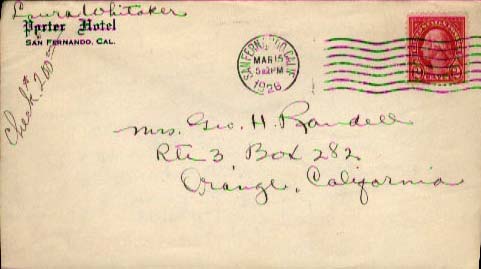 Laura Whitaker
Porter Hotel
SAN FERNANDO, CAL.
Check # 200
SAN FERNANDO, CALIF.
MAR 15
5 PM
1926
2 CENTS 2
Mrs. Geo. H. Randell
Rte 3, Box 282
Orange, California